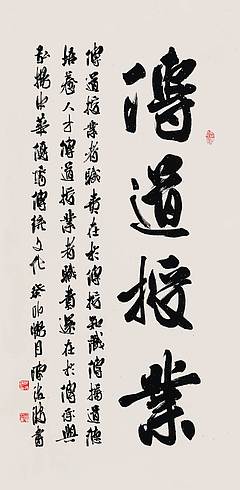 傳道授業
傳道授業者職責在於傳授知識傳播道德
培養人才傳道授業者職責還在於傳承與
揚中華優秀傳統文化 癸卯 月 書